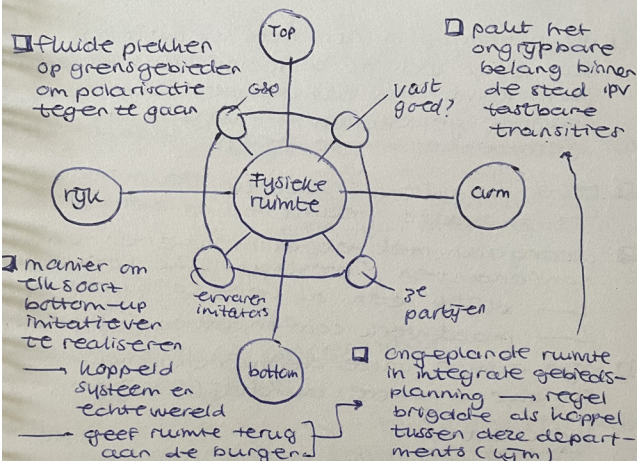 □ fluide plekken
op grensgebieden
om polarisatie
tegen te gaan
Top
□ pakt het
ongrijpbare
belang binnen
de stad ipv
tastbare
transities
vast
goed?
rijk
Fysieke
ruimte
arm
□ manier om
elk soort
bottom-up
initiatieven
te realiseren
→ koppeld
systeem en
echte wereld
→ geef ruimte terug
aan de burger
ervaren
initiators
3e
partijen
bottom
□ ongeplande ruimte
in integrale gebieds-
planning → regel
brigade als koppel
tussen deze depart-
ments (lijm)